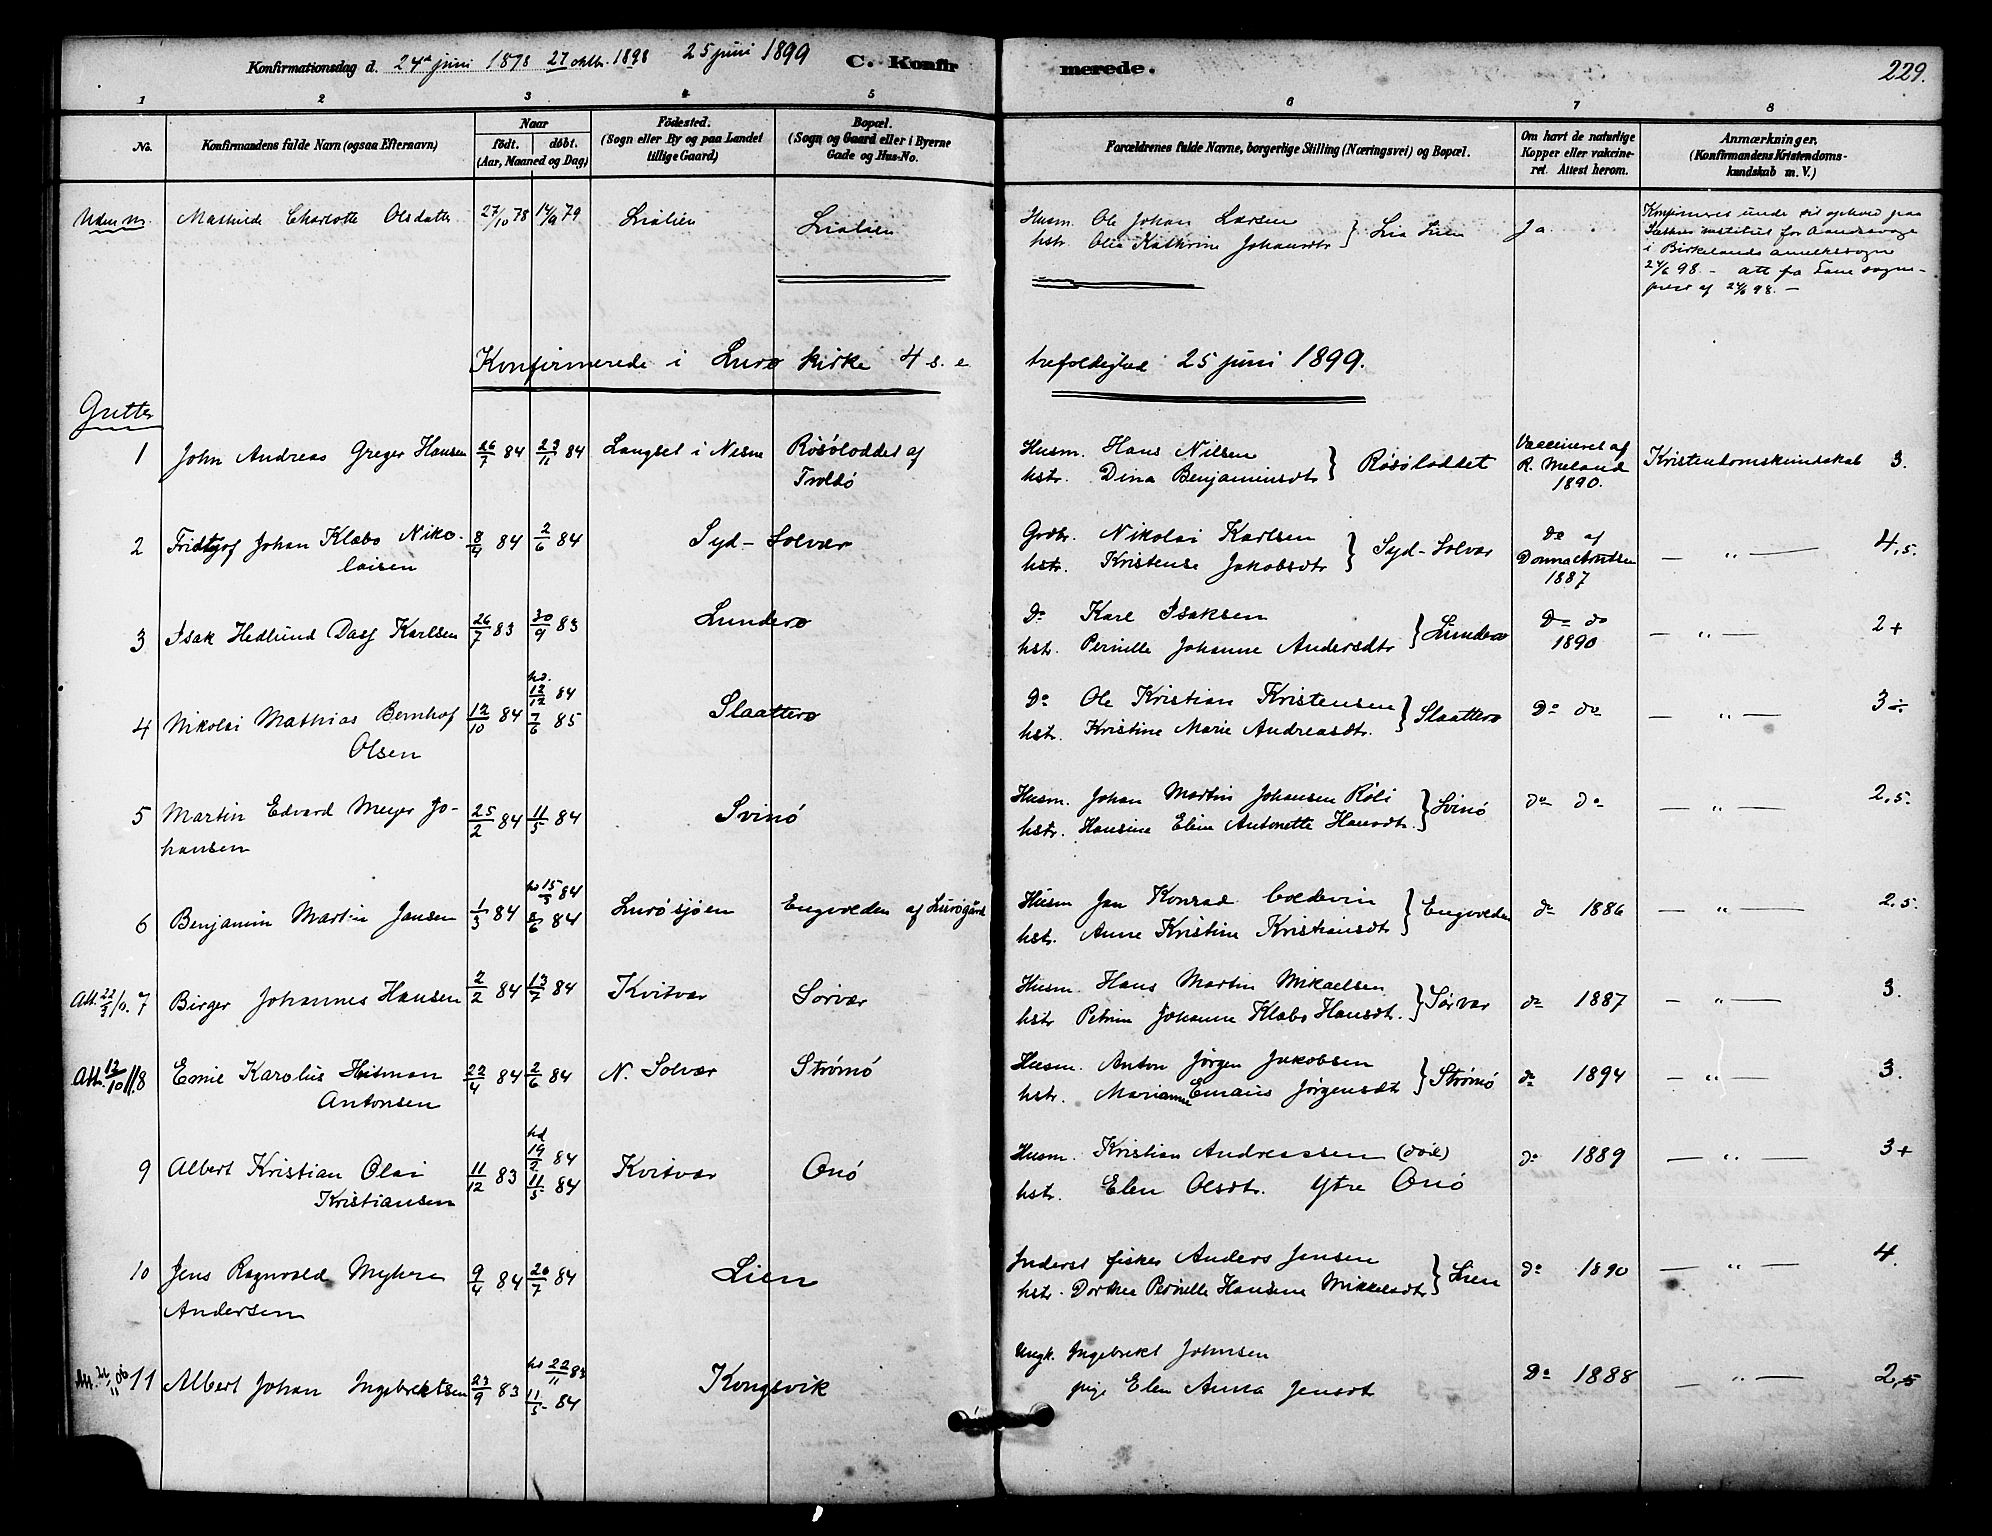 Konfirmationsdag d. 24de juni 1898 27 oktbr. 1898 25 juni 1899 C. Konfirmerede. 229.
1 2 3 4 5 6 7 8
No. Konfirmandens fulde Navn (ogsaa Efternavn) Naar født. døbt. (Aar, Maaned og Dag) Fødested. (Sogn eller By og paa Landet tillige Gaard) Bopæl. (Sogn og Gaard eller i Byerne Gade og Hus-No. Forældrenes fulde Navne, borgerlige Stilling (Næringsvei) og Bopæl. Om havt de naturlige Kopper eller vakcineret. Attest herom. Anmærkninger. (Konfirmandens Kristendomskundskab m. V.)
Uden no. Mathilde Charlotte Olsdatter 27/10 78 14/9 79 Lialien Lialien Husm. Ole Johan Larsen } Lia Lien Ja
hstr. Olea Kathrine Johansdtr
Konfirmeret under sit ophold paa
institut for Aandssvage
i Birkelands annekssogn
24/6 98. – att fra Fane sogne-
prest af 24/6 98. –
Konfirmerede i Lurø kirke 4 s. e. trefoldighed 25 juni 1899.
Gutter
1 John Andreas Greger Hansen 26/7 84 23/11 84 Langset i Nesne Røsøloddet af Husm. Hans Nilsen } Røsøloddet Vaccineret af Kristendomskundskab 3.
Troldø hstr. Dina Benjaminsdtr R. Meland
1890.
2 Fridtjof Johan Klæbo Niko- 8/4 84 2/6 84 Syd-Solvær Grdbr. Nikolai Karlsen } Syd-Solvær Do af — " — 4,5.
laisen hstr. Kristense Jakobsdtr Donna Arntsen
1887
3 Isak Hedlund Dass Karlsen 26/7 83 30/9 83 Lunderø Do Karl Isaksen } Lunderø Do do — " — 2+
hstr. Pernille Johanne Andersdtr 1890
4 Nikolai Mathias Bernhof 12/10 84 hd. 12/12 84 Slaatterø Do Ole Kristian Kristensen } Slaatterø Do do — " — 3÷
Olsen 7/6 85 hstr. Kristine Marie Andreasdtr.
5 Martin Edvard Meyer Jo- 25/2 84 11/5 84 Svinø Husm. Johan Martin Johansen Røli } Svinø do do — " — 2,5.
hansen hstr. Hansine Elen Antonette Hansdtr.
6 Benjamin Martin Jansen 1/3 84 hd 15/3 84 Lurøsjøen Engvolden af Lurøgård Husm Jan Konrad Coldevin } Engvolden do 1886 — " — 2,5.
2/6 84 hstr. Anne Kristine Kristiansdtr
Att. 22/3 10. 7 Birger Johannes Hansen 2/2 84 13/7 84 Kvitvær Sørvær Husm. Hans Martin Mikaelsen } Sørvær do 1887 — " — 3.
hstr Petrine Johanne Klæbo Hansdtr.
Att. 12/10 11 8 Emil Karolus Heitman 22/4 84 2/6 84 N. Solvær Strømø Husm. Anton Jørgen Jakobsen } Strømø do 1894 — " — 3.
Antonsen hstr. Marianne Emaus Jørgensdtr
9 Albert Kristian Olai 11/12 83 hd 19/2 84 Kvitvær Onø Husm. Kristian Andreassen (død) do 1889 — " — 3+
Kristiansen 11/5 84 hstr. Elen Olsdtr. Ytre Onø
10 Jens Ragnvald Myhre 9/4 84 20/7 84 Lien Inderst fisker Anders Jensen } Lien do 1890 — " — 4.
Andersen hstr. Dorthea Pernille Hansine Mikkelsdtr
11 Albert Johan Ingebrektsen 23/9 83 hd 22/11 83 Kongsvik Ungk. Ingebrekt Johnsen Do 1888 — " — 2,5
11/5 84 pige Elen Anna Jensdtr